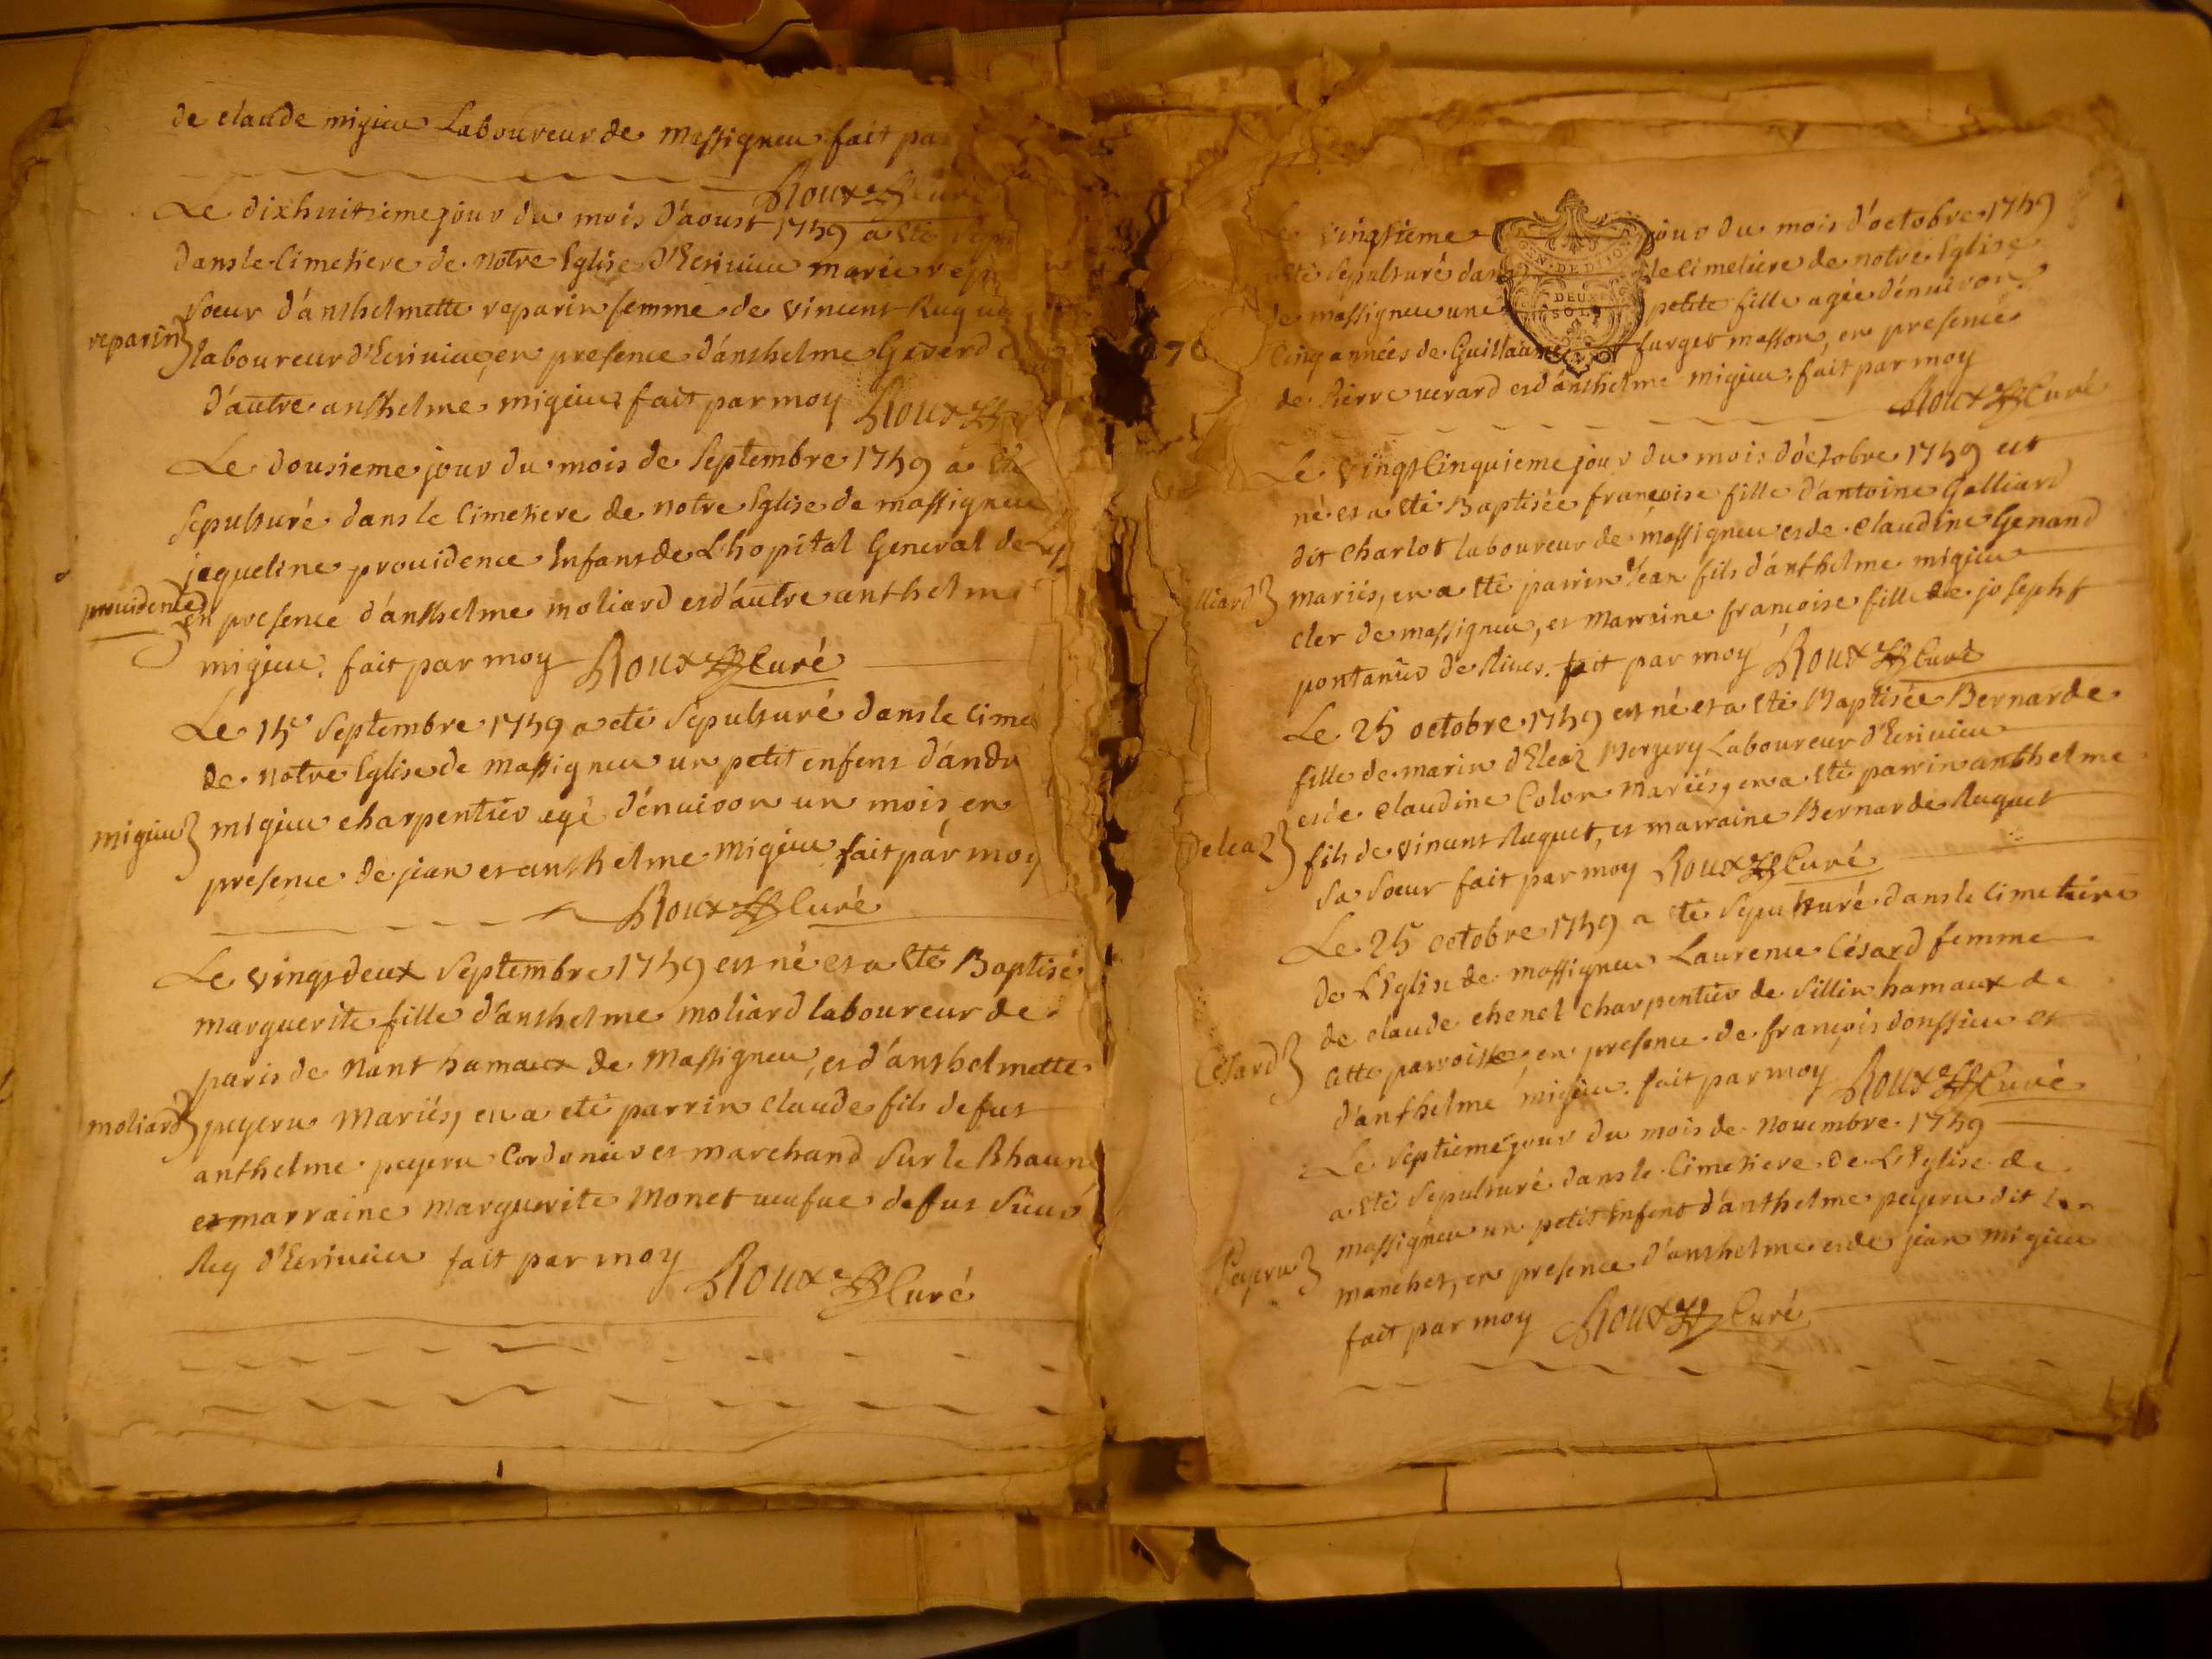 de claude migieu Laboureur de massigneu fait pa
Roux Curé
Le dixhuitiemejour du mois d'aoust 1759 a eté
dans le Cimetiere de notre Eglise d'Ecrivieu marie
soeur d'anthelmette reparin femme de vincent
reparin
laboureur d'Ecrivieu, en presence d'anthelme Gererd
d'autre anthelme migieu, fait par moy Roux
Le dousieme jour du mois de septembre 1759 a
sepulturé dans le Cimetiere de notre Eglise de massigneu
jaqueline providence Enfant de L'hopital General de
providence
en presence d'anthelme moliard et d'autre anthelme
migieu. fait par moy Roux Curé
Le 15 septembre 1759 a eté sepulturé dans le Cime
de notre Eglise de massigneu un petit enfent d'andr
migieu
migieu charpentier egé d'environ un mois, en
presence de jean et anthelme migieu fait par moy
Roux Curé
Le vingtdeux septembre 1759 est né et a eté Baptisé
marguerite fille d'anthelme moliard laboureur de
paris de nant hamaux de massigneu, et d'anthelmette
moliard
peyeru mariés, en a eté parrin claude fils defut
anthelme peyeru Cordonier et marchand sur le Rhaune
et marraine marguerite monet veufue defut
Rey d'Ecrivieu fait par moy
Roux Curé
Le vingtieme jour du mois d'octobre 1759
GEN. DE DIJON
DEUX SOLS
eté sepulturé dans le Cimetiere de notre Eglise
de massigneu une petite fille agée d'enviro
76
Cinq années de Guillaume furget masson, en presence
de Pierre verard et d'anthelme migieu, fait par moy
Roux Curé
Le vingtCinquieme jour du mois d'octobre 1759 est
né et a eté Baptisée françoise fille d'antoine Galliard
dit Charlot laboureur de massigneu et de claudine Genand
lliard
mariés, en a eté parrin Jean fils d'anthelme migieu
cler de massigneu, et marraine françoise fille de josepht
pontanier de Rives. fait par moy Roux Curé
Le 25 octobre 1759 est né et a eté Baptisée Bernarde
fille de marin d'Eleaz Mergery Laboureur d'Ecrivieu
et de claudine Colon mariés, en a eté parrin anthelme
Deleaz
fils de vincent Ruquet, et marraine Bernarde Ruquet
sa soeur fait par moy Roux Curé
Le 25 octobre 1759 a eté sepulturé dans le Cimetiere
de L'Eglise de massigneu Laurence Césard femme
Césard
de claude chenel charpentier de sillin hamaux de
Cette parroisse, en presence de françois donssieu et
d'anthelme migieu. fait par moy Roux Curé
Le septieme jour du mois de novembre 1759
a eté sepulturé dans le Cimetiere de L'Eglise de
massigneu un petit Enfent d'anthelme peyeru dit
Peyeru
manchet, en presence d'anthelme et de jean migieu
fait par moy Roux Curé